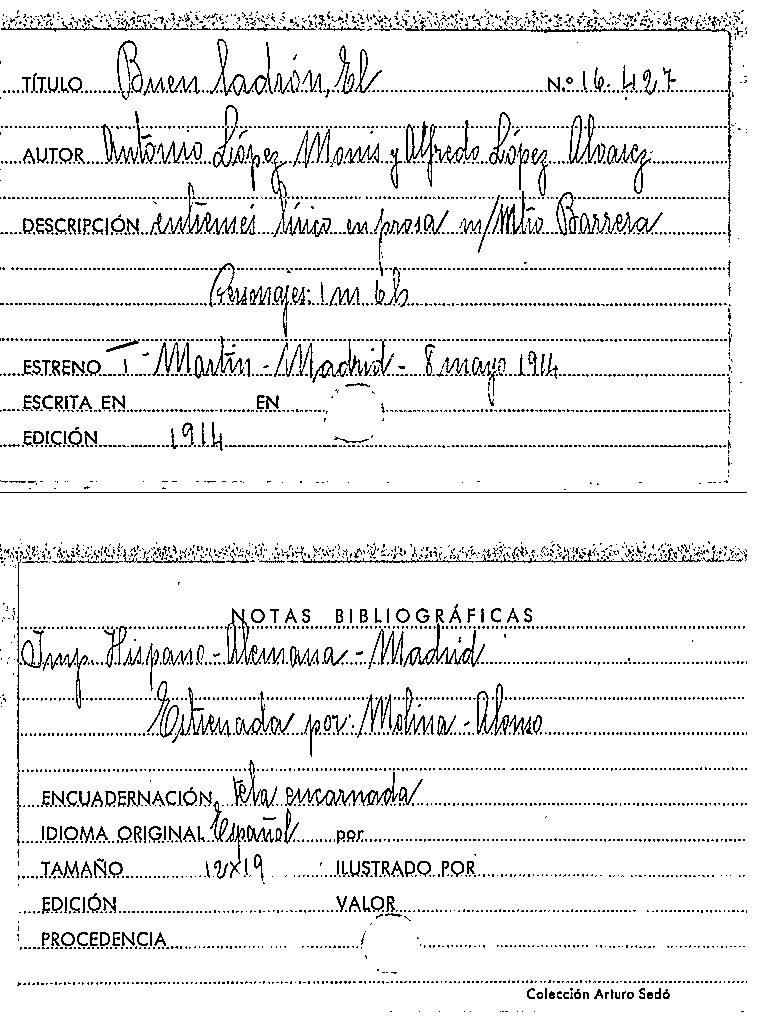 TÍTULO Buen ladrón, El N.º 16.427
AUTOR Antonio López Monis y Alfredo López Alvarez
DESCRIPCIÓN entremés lírico en prosa m/ Mtro Barrera
Personajes: 1 m 6 h
ESTRENO T- Martín - Madrid - 8 mayo 1914
ESCRITA EN EN
EDICIÓN 1914
NOTAS BIBLIOGRÁFICAS
Imp. Hispano-Alemana - Madrid
Estrenada por: Molina - Alonso
ENCUADERNACIÓN tela encarnada
IDIOMA ORIGINAL Español por
TAMAÑO 12x19 ILUSTRADO POR
EDICIÓN VALOR
PROCEDENCIA
Colección Arturo Sedó